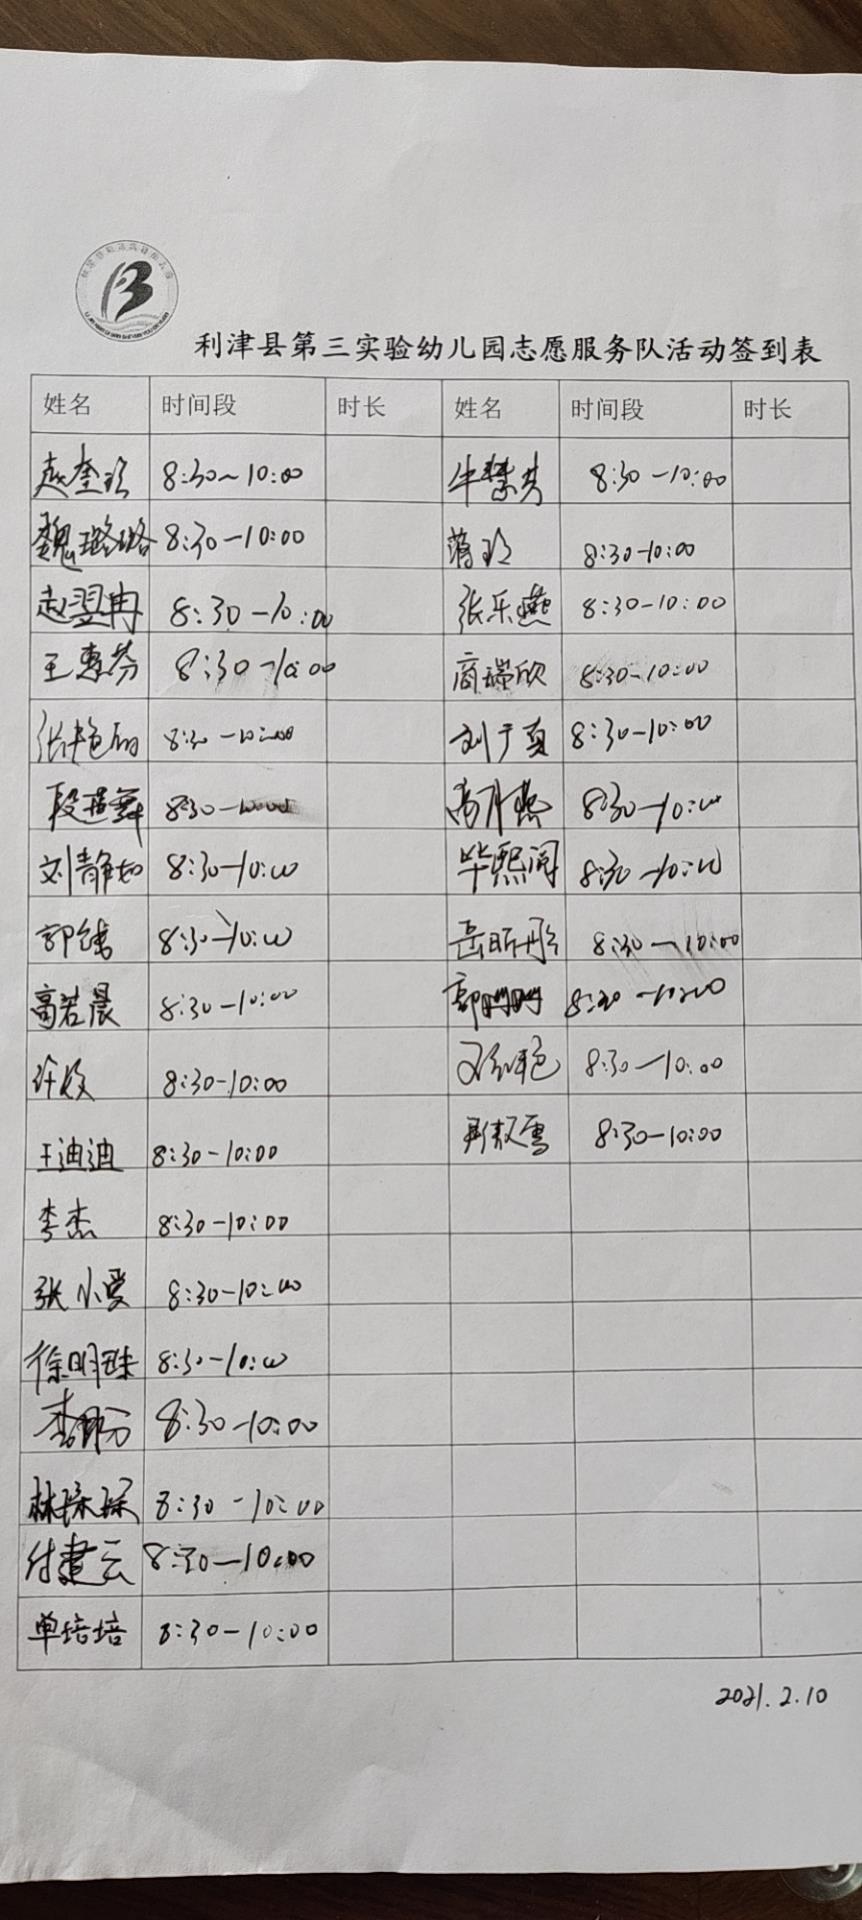 利津县第三实验幼儿园志愿服务队活动签到表
姓名 时间段 时长 姓名 时间段 时长
赵奎玲 8:30~10:00 牛慧芳 8:30-10:00
魏璐璐 8:30-10:00 蒋玲 8:30-10:00
赵翌冉 8:30-10:00 张乐燕 8:30-10:00
王惠芬 8:30-10:00 商瑞欣 8:30-10:00
8:30-10:00 刘于真 8:30-10:00
8:30-10:00 8:30-10:00
刘静如 8:30-10:00 毕熙阁 8:30-10:00
郭倩 8:30-10:00 岳昕彤 8:30-10:00
高若晨 8:30-10:00 郭明明 8:30-10:00
许姣 8:30-10:00 8:30-10:00
王迪迪 8:30-10:00 8:30-10:00
李杰 8:30-10:00
张小雯 8:30-10:00
徐明珠 8:30-10:00
李盼 8:30-10:00
林琛琛 8:30-10:00
付建云 8:30-10:00
单培培 8:30-10:00
2021.2.10